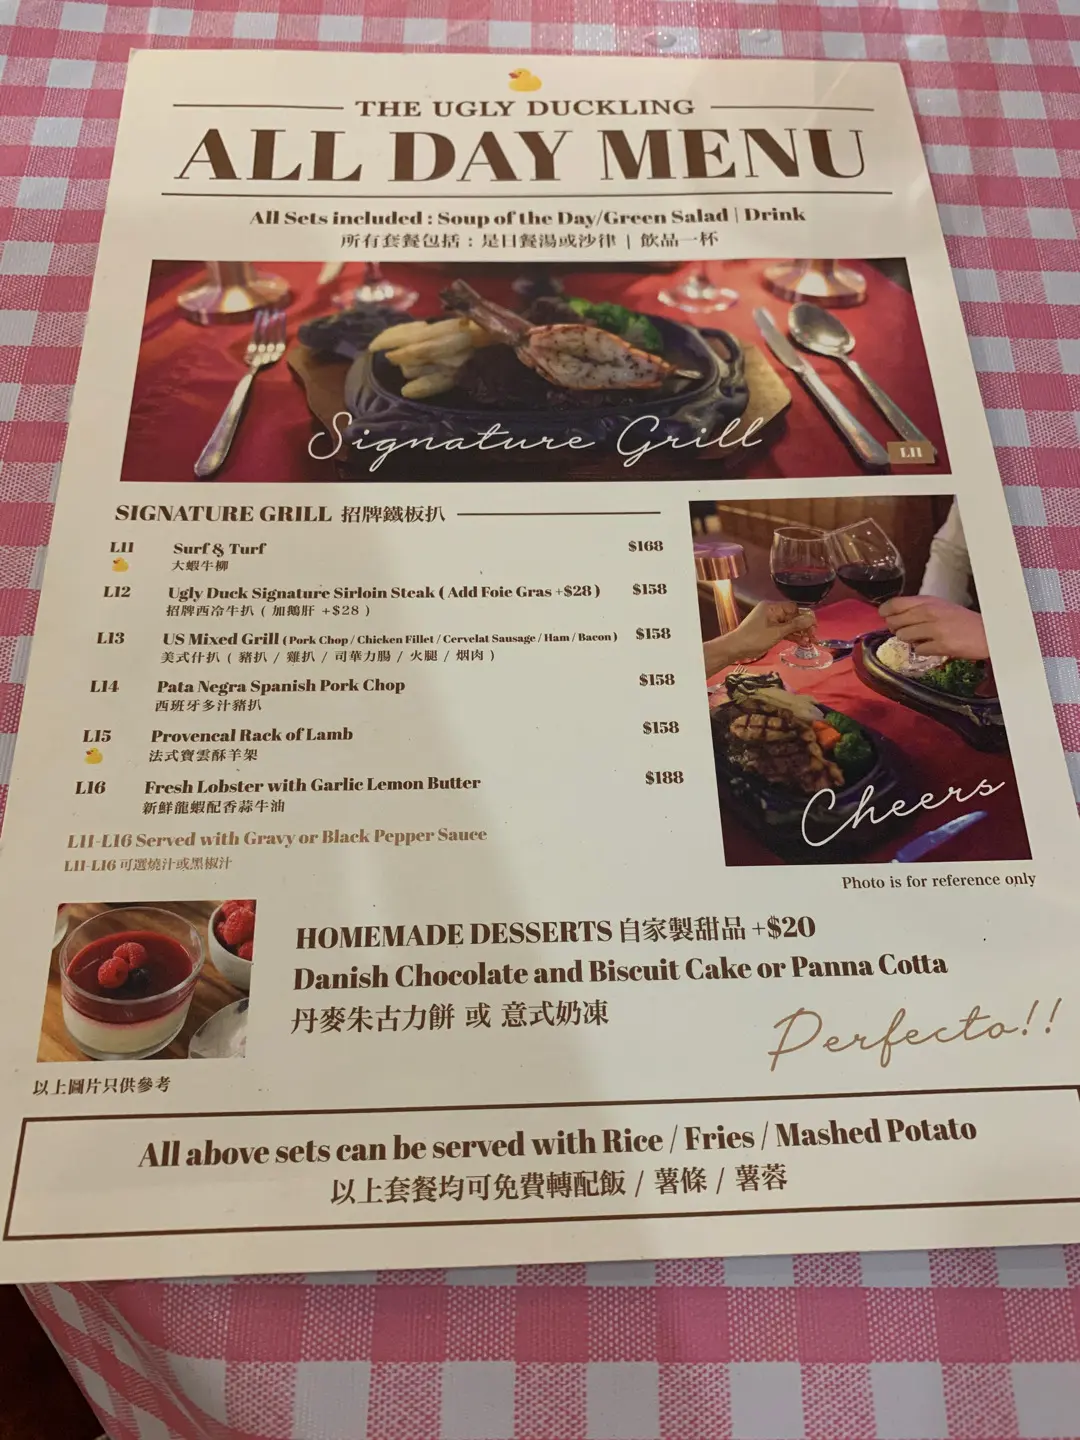 THE UGLY DUCKLING
ALL DAY MENU
All Sets included : Soup of the Day/Green Salad | Drink
所有套餐包括 : 是日餐湯或沙律 | 飲品一杯
Signature Grill
L11
SIGNATURE GRILL 招牌鐵板扒
L11 Surf & Turf $168
大蝦牛柳
L12 Ugly Duck Signature Sirloin Steak ( Add Foie Gras +$28 ) $158
招牌西冷牛扒 ( 加鵝肝 +$28 )
L13 US Mixed Grill ( Pork Chop / Chicken Fillet / Cervelat Sausage / Ham / Bacon ) $158
美式什扒 ( 豬扒 / 雞扒 / 司華力腸 / 火腿 / 烟肉 )
L14 Pata Negra Spanish Pork Chop $158
西班牙多汁豬扒
L15 Provencal Rack of Lamb $158
法式寶雲酥羊架
L16 Fresh Lobster with Garlic Lemon Butter $188
新鮮龍蝦配香蒜牛油
L11-L16 Served with Gravy or Black Pepper Sauce
L11-L16 可選燒汁或黑椒汁
Cheers
Photo is for reference only
HOMEMADE DESSERTS 自家製甜品 +$20
Danish Chocolate and Biscuit Cake or Panna Cotta
丹麥朱古力餅 或 意式奶凍
Perfecto!!
以上圖片只供參考
All above sets can be served with Rice / Fries / Mashed Potato
以上套餐均可免費轉配飯 / 薯條 / 薯蓉